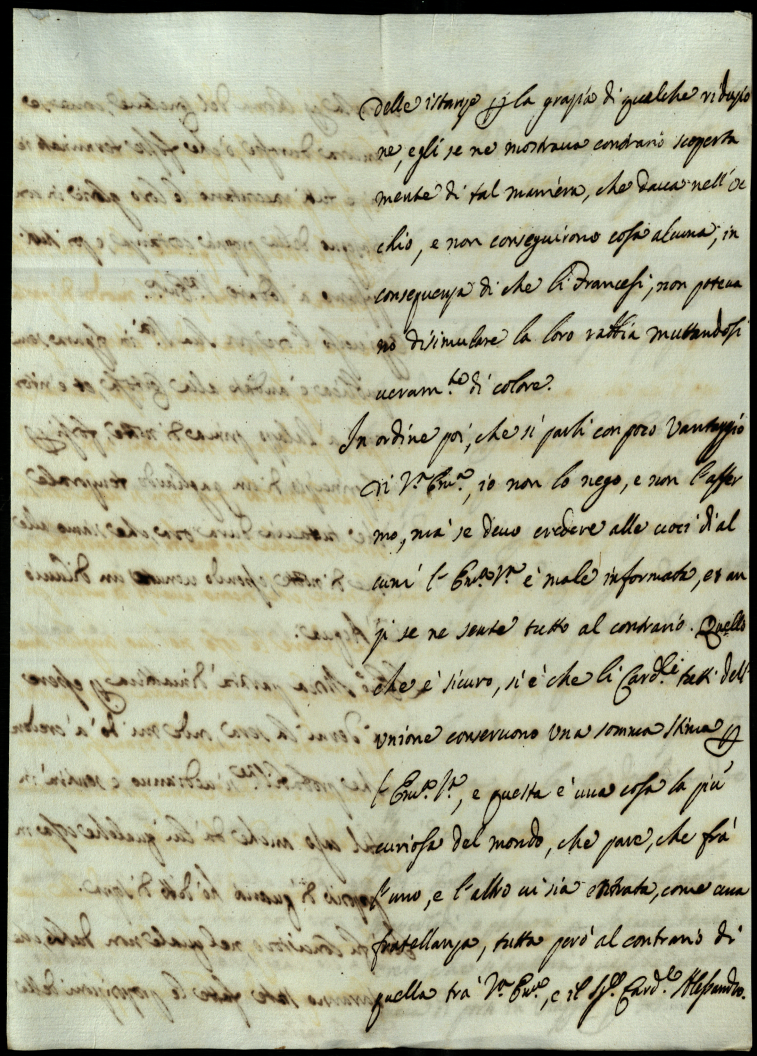 delle istanze per la grazia di qualche riduzio
ne, egli se ne mostraua contrario scoperta
mente di tal maniera, che daua nell'oc
chio, e non conseguirono cosa alcuna, in
consequenza di che li Francesi, non poteua
no disimulare la loro rabbia mutandosi
ueram.te di colore.
In ordine poi, che si parli con poco Vantaggio
di V.ra Em.a, io non lo nego, e non l'affer
mo, ma se deuo credere alle uoci di al
cuni l'Em.a V.ra è male informata, et an
zi se ne sente tutto al contrario. Quello
che è sicuro, si è che li Card.li tutti dell'
unione conseruono una somma stima per
l'Em.a V.ra, e questa è una cosa la più
curiosa del mondo, che pare, che frà
l'uno, e l'altro ui sia entrata, come una
fratellanza, tutta però al contrario di
quella trà V.ra Em.a, e il Sig.r Card.le Alessandro.